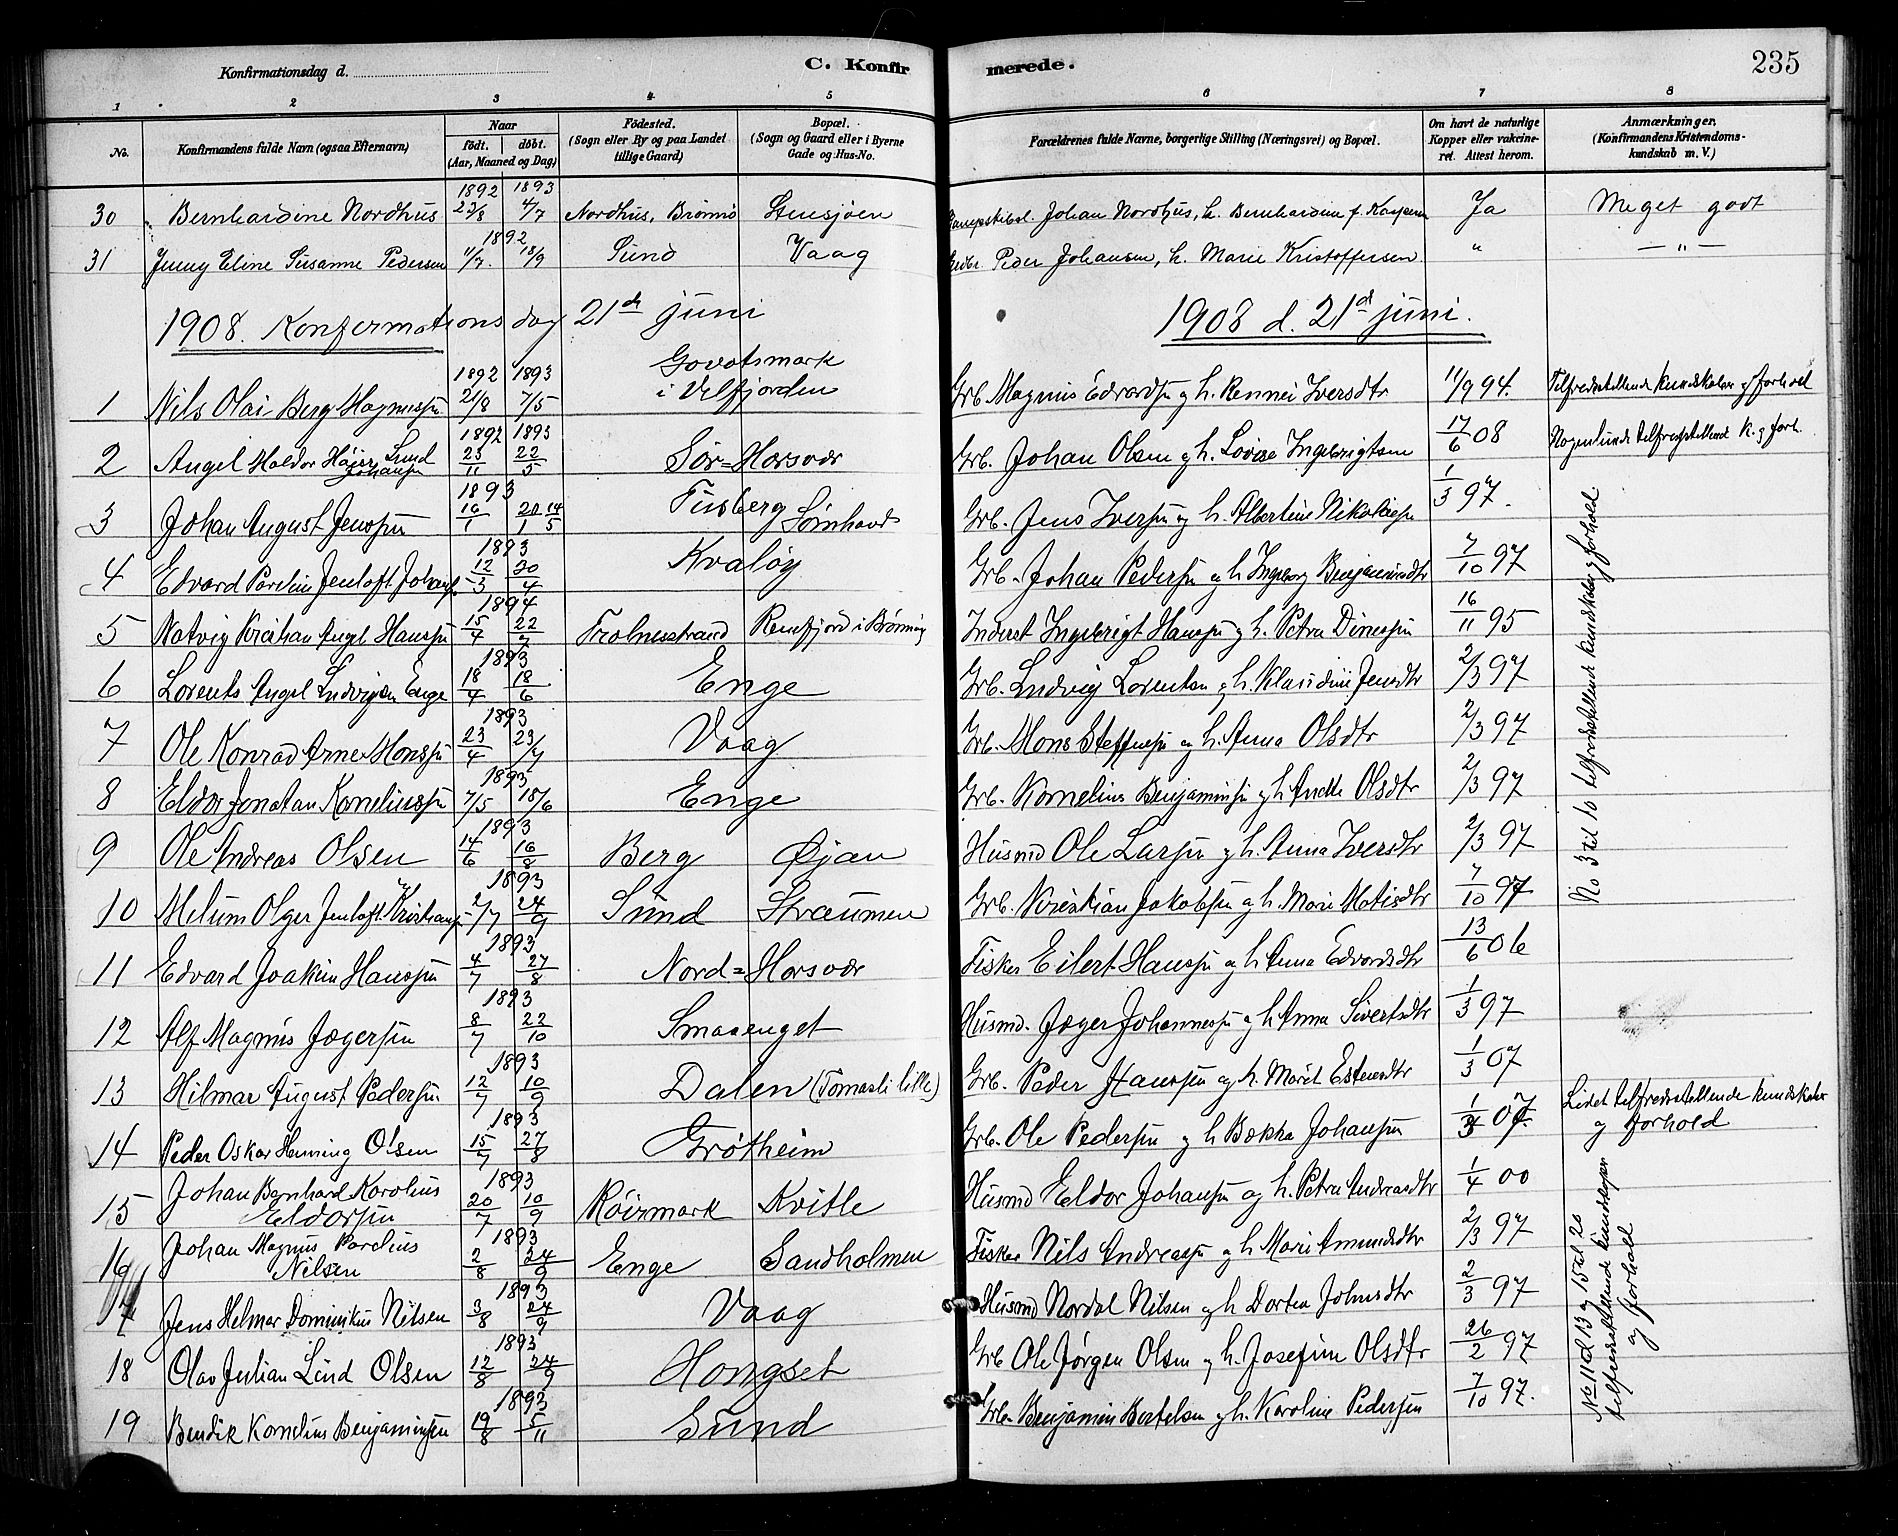 Konfirmationsdag d. C. Konfir merede. 235
1 2 3 4 5 6 7 8
No. Konfirmandens fulde Navn (ogsaa Efternavn) Naar født. døbt. (Aar, Maaned og Dag) Fødested. (Sogn eller By og paa Landet tillige Gaard) Bopæl. (Sogn og Gaard eller i Byerne Gade og Hus-No. Forældrenes fulde Navne, borgerlige Stilling (Næringsvei) og Bopæl. Om havt de naturlige Kopper eller vakcineret. Attest herom. Anmærkninger. (Konfirmandens Kristendomskundskab m. V.)
1892 1893
30 Bernhardine Nordhus 23/8 4/7 Nordhus, Brønnø Stensjøen Johan Nordhus, h. Bernhardine f. Kaspersen Ja Meget godt
1892
31 Jenny Eline Susanne Pedersen 11/7. 18/9 Sund Vaag Peder Johansen, h. Marie Kristoffersen " — " —
1908. Konfirmationsdag 21de juni 1908 d. 21de juni.
1892 1893 Govatsmark
1 Nils Olai Berg Magnussøn 21/8 7/5 i Velfjorden Grb. Magnus Edvardsøn og h. Rennei Iversdtr 11/9 94. Tilfredsstellende kundskaber og forhold
1892 1893
2 Angel Haldor Højer Lund Johansøn 23/11 22/5 Sør=Horsvær Grb. Johan Olsen og h. Lovise Ingebrigtsen 17/6 08 Nogenlunde tilfredsstellende K. og forh.
1893
3 Johan August Jenssøn 16/1 14/5 Tilsberg Grb. Jens Iversøn og h. Albertine Nikolaisøn 1/3 97.
1893
4 Edvard Parelius Jenloft Johansøn 12/3 30/4 Kvaløy Grb. Johan Pedersøn og h. Ingeborg Benjaminsdtr 7/10 97
1894
5 Notvig Kristian Angel Hanssøn 15/4 22/7 Trolnesstrand Inderst Ingebrigt Hanssøn og h. Petra Dinessøn 16/11 95
1893
6 Lorents Angel Ludvigsen Enge 18/4 18/6 Enge Grb. Ludvig Lorentsen og h. Klaudine Jensdtr 2/3 97
1893
7 Ole Konrad Arne Monssøn 23/4 23/7 Vaag Grb. Mons Steffensøn og h. Anna Olsdtr 2/3 97
1893
8 Eldor Jonatan Korneliussøn 7/5 18/6 Enge Grb. Kornelius Benjaminsøn og h. Olsdtr 2/3 97
1893
9 Ole Andreas Olsen 14/6 16/8 Berg Øjan Husmd Ole Larsøn og h. Anna Iversdtr 2/3 97
1893
10 Melum Olger Jenloft Kristiansøn 2/7 24/9 Sund Straumen Grb. Kristian Jakobsøn og h. Marie Matisdtr 7/10 97
No 3 til 10 tilfredsstellende kundskaber og forhold
1893
11 Edvard Joakim Hanssøn 4/7 27/8 Nord=Horsvær Fisker Eilert Hanssøn og h. Anna Edvardsdtr 13/6 06
1893
12 Alf Magnus Jægersøn 8/7 22/10 Smaaenget Husmd. Jæger Johannessøn og h. Anna Sivertsdtr 1/3 97
1893
13 Hilmar August Pedersøn 12/7 10/9 Dalen (Tomasli lille) Grb. Peder Hanssøn og h. Marit Estensdtr 1/3 07
1893
14 Peder Oskar Henning Olsen 15/7 27/8 Grøtheim Grb. Ole Pedersøn og h. Bækka Johansøn 1/3 07 Lidet tilfredsstellende kundskaber og forhold
1893
15 Johan Bernhard Karolius Eldorsøn 20/7 10/9 Røirmark Kvitle Husmd Eldor Johansøn og h. Petra Andreasdtr 1/4 00
1893
16 Johan Magnus Parelius Nilsen 2/8 24/9 Enge Sandholmen Fisker Nils Andreassøn og h. Marie Amundsdtr 2/3 97
1893
17 Jens Helmer Dominikus Nilsen 3/8 24/9 Vaag Husmd Nordal Nilsen og h. Dortea Johnsdtr 2/3 97
1893
18 Olav Julian Lind Olsen 12/8 24/9 Hongset Grb Ole Jørgen Olsen og h. Josefine Olsdtr 26/2 97
1893
19 Bendik Kornelius Benjaminsen 19/8 5/11 Sund Grb. Benjamin Bertelsen og h. Karoline Pedersøn 7/10 97.
No 11 13 og 15 til 20 tilfredsstellende kundskaper og forhold